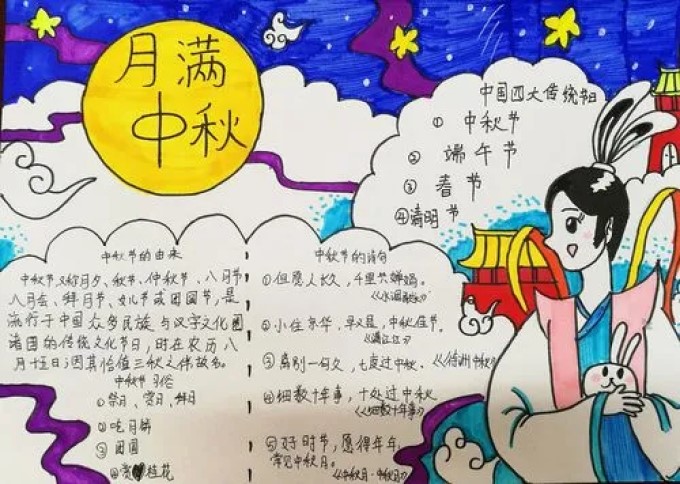 月满
中秋
中国四大传统节日
① 中秋节
② 端午节
③ 春节
④清明节
中秋节的由来
中秋节又称月夕、秋节、仲秋节、八月节
八月会、拜月节、女儿节或团圆节，是
流行于中国众多民族与汉字文化圈
诸国的传统文化节日，时在农历八
月十五日；因其恰值三秋之伴故名。
中秋节习俗
①祭月、赏月、拜月
②吃月饼
③ 团圆
④赏桂花
中秋节的诗句
①但愿人长久，千里共婵娟。
《水调歌头》
②小住京华，早又是，中秋佳节。
《满江红》
③离别一何久，七度过中秋。《徐州中秋》
④细数十年事，十处过中秋
《细数十年事》
⑤好时节，愿得年年，
常见中秋月。
《中秋月·中秋月》